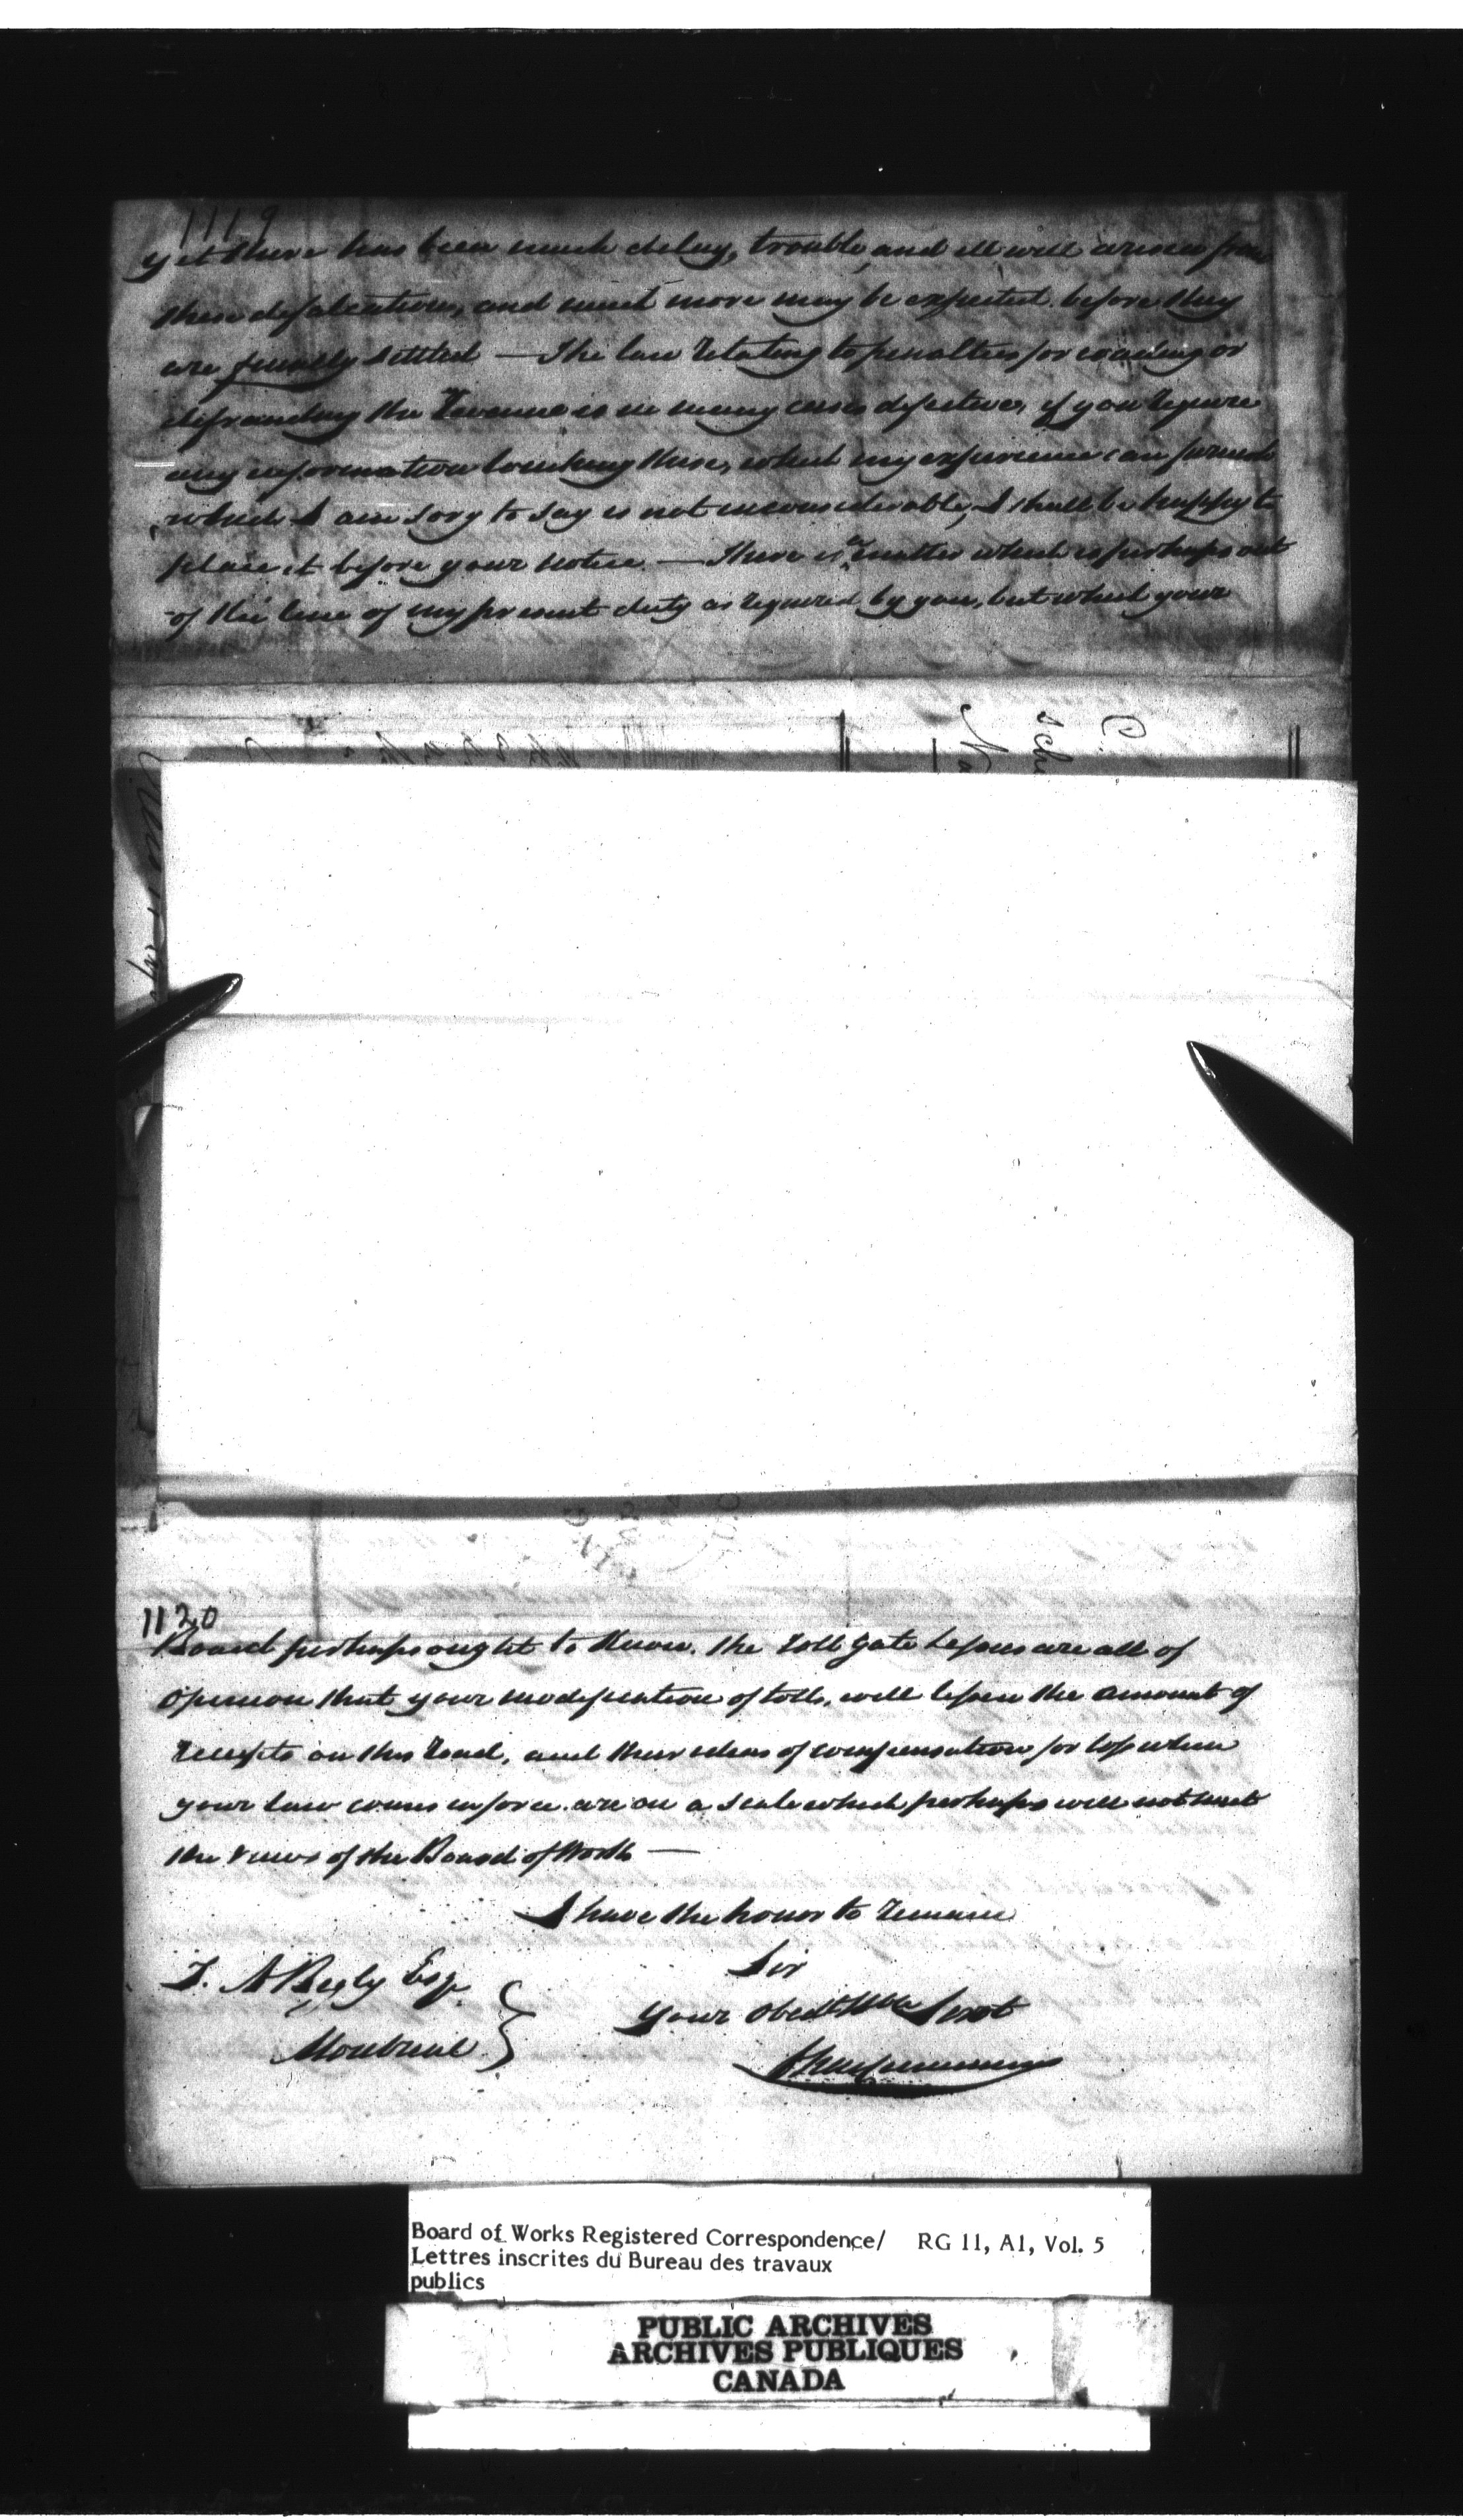 1119
yet there has been much delay, trouble, and ill will arisen from
these defalcations, and much more may be expected before they
are finally settled — The law relating to penalties for evading or
defrauding the Revenue is in many cases defective, if you require
any information touching these, which my experience can furnish
which I am sory to say is not inconsiderable, I shall be happy to
place it before your notice. — There is a matter which is perhaps out
of the line of my present duty as required by you, but which your
C.
Sch
Na
1120
Board perhaps ought to know. the Toll Gate Lessees are all of
opinion that your modification of tolls, will lessen the amount of
receipts on this Road, and their ideas of compensation for loss when
your law comes in force are on a scale which perhaps will not meet
the views of the Board of Works —
I have the honor to remain
Sir
T. A Begly Esqr
Your Obedt Hble Servt
Montreal
Board of Works Registered Correspondence/ RG 11, A1, Vol. 5
Lettres inscrites du Bureau des travaux
publics
PUBLIC ARCHIVES
ARCHIVES PUBLIQUES
CANADA